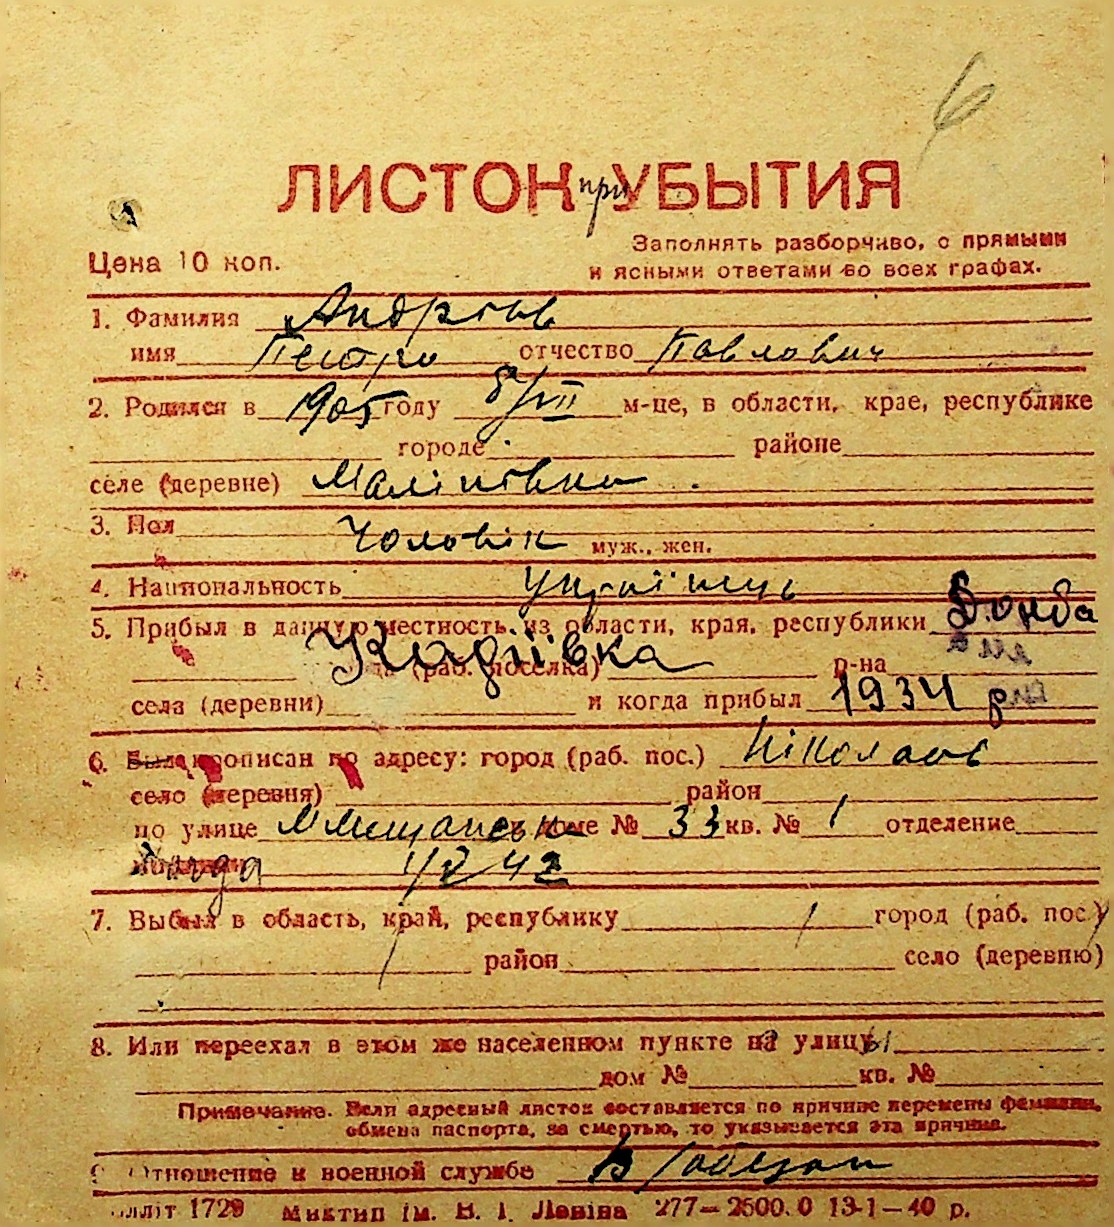 6
ЛИСТОК при УБЫТИЯ
Цена 10 коп.
Заполнять разборчиво, с прямыми
и ясными ответами во всех графах.
1. Фамилия Андреев
имя Петро отчество Павлович
2. Родился в 1905 году 8/VII м-це, в области, крае, республике
городе районе
селе (деревне) Малінівка
3. Пол Чоловік муж., жен.
4. Национальность Українець
5. Прибыл в данную местность из области, края, республики Донба
Кадіївка (раб. поселка) р-на
села (деревни) и когда прибыл 1934 р
6. Был прописан по адресу: город (раб. пос.) Ніколаєв
село (деревня) район
по улице доме № 33 кв. № 1 отделение
42
7. Выбыл в область, край, республику город (раб. пос.)
район село (деревню)
8. Или переехал в этом же населенном пункте на улицу
дом № кв. №
Примечание. Если адресный листок составляется по причине перемены фамилии,
обмена паспорта, за смертью, то указывается эта причина.
9 Отношение к военной службе
лліт 1729 Миктип ім. В. І. Леніна 277—2500.0 13-1—40 р.